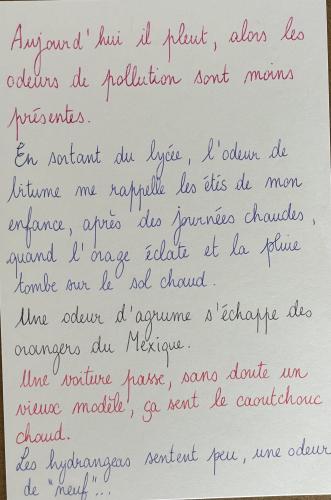 Aujourd'hui il pleut, alors les
odeurs de pollution sont moins
présentes.
En sortant du lycée, l'odeur de
bitume me rappelle les étés de mon
enfance, après des journées chaudes,
quand l'orage éclate et la pluie
tombe sur le sol chaud.
Une odeur d'agrume s'échappe des
orangers du Mexique.
Une voiture passe, sans doute un
vieux modèle, ça sent le caoutchouc
chaud.
Les hydrangeas sentent peu, une odeur
de "neuf"...